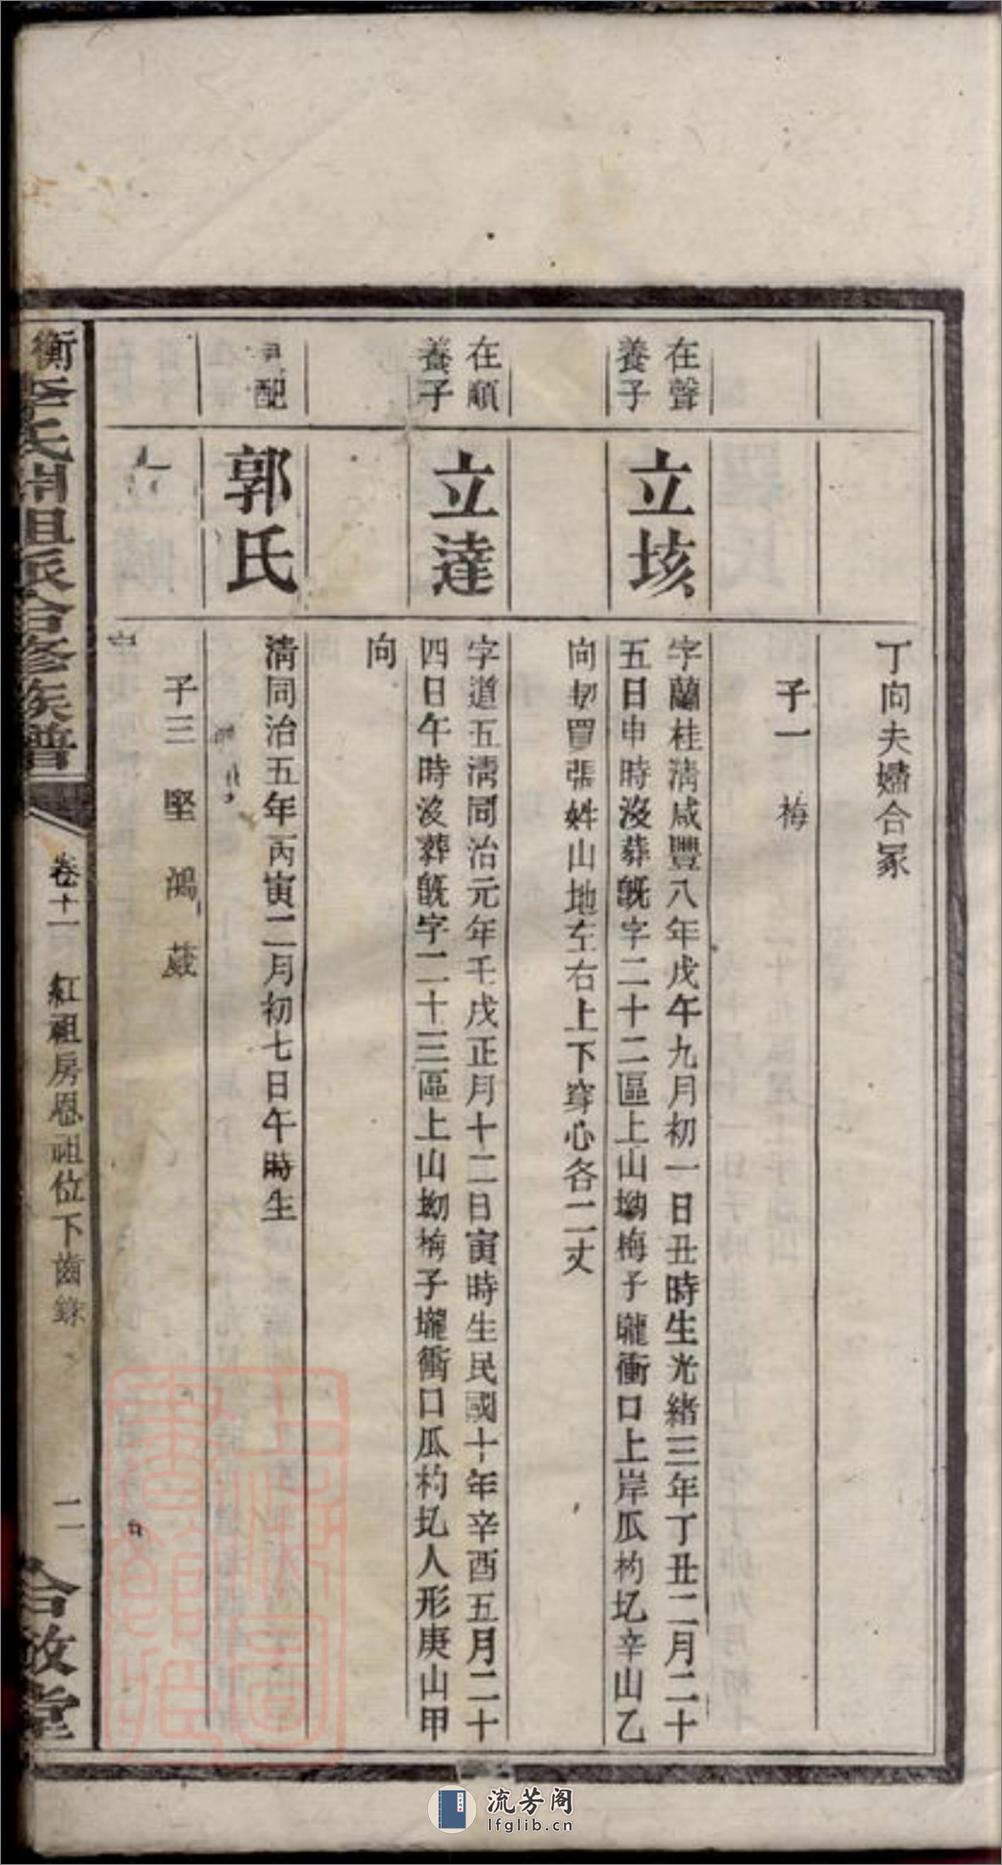 丁向夫嬸合冢
子一 梅
在聲
養子
立垓
字蘭桂淸咸豐八年戊午九月初一日丑時生光緒三年丁丑二月二十
五日申時沒葬旣字二十二區上山坳梅子壠衝口上岸瓜杓圠辛山乙
向契買張姓山地左右上下穿心各二丈
在順
養子
立達
字道五淸同治元年壬戌正月十二日寅時生民國十年辛酉五月二十
四日午時沒葬旣字二十三區上山坳梅子壠衝口瓜杓圠人形庚山甲
向
配
郭氏
淸同治五年丙寅二月初七日午時生
子三 堅 鴻 葳
衡李氏開祖派合修族譜
卷十一 紅祖房恩祖位下齒錄
二
合敬堂
流芳阁
lfglib.cn